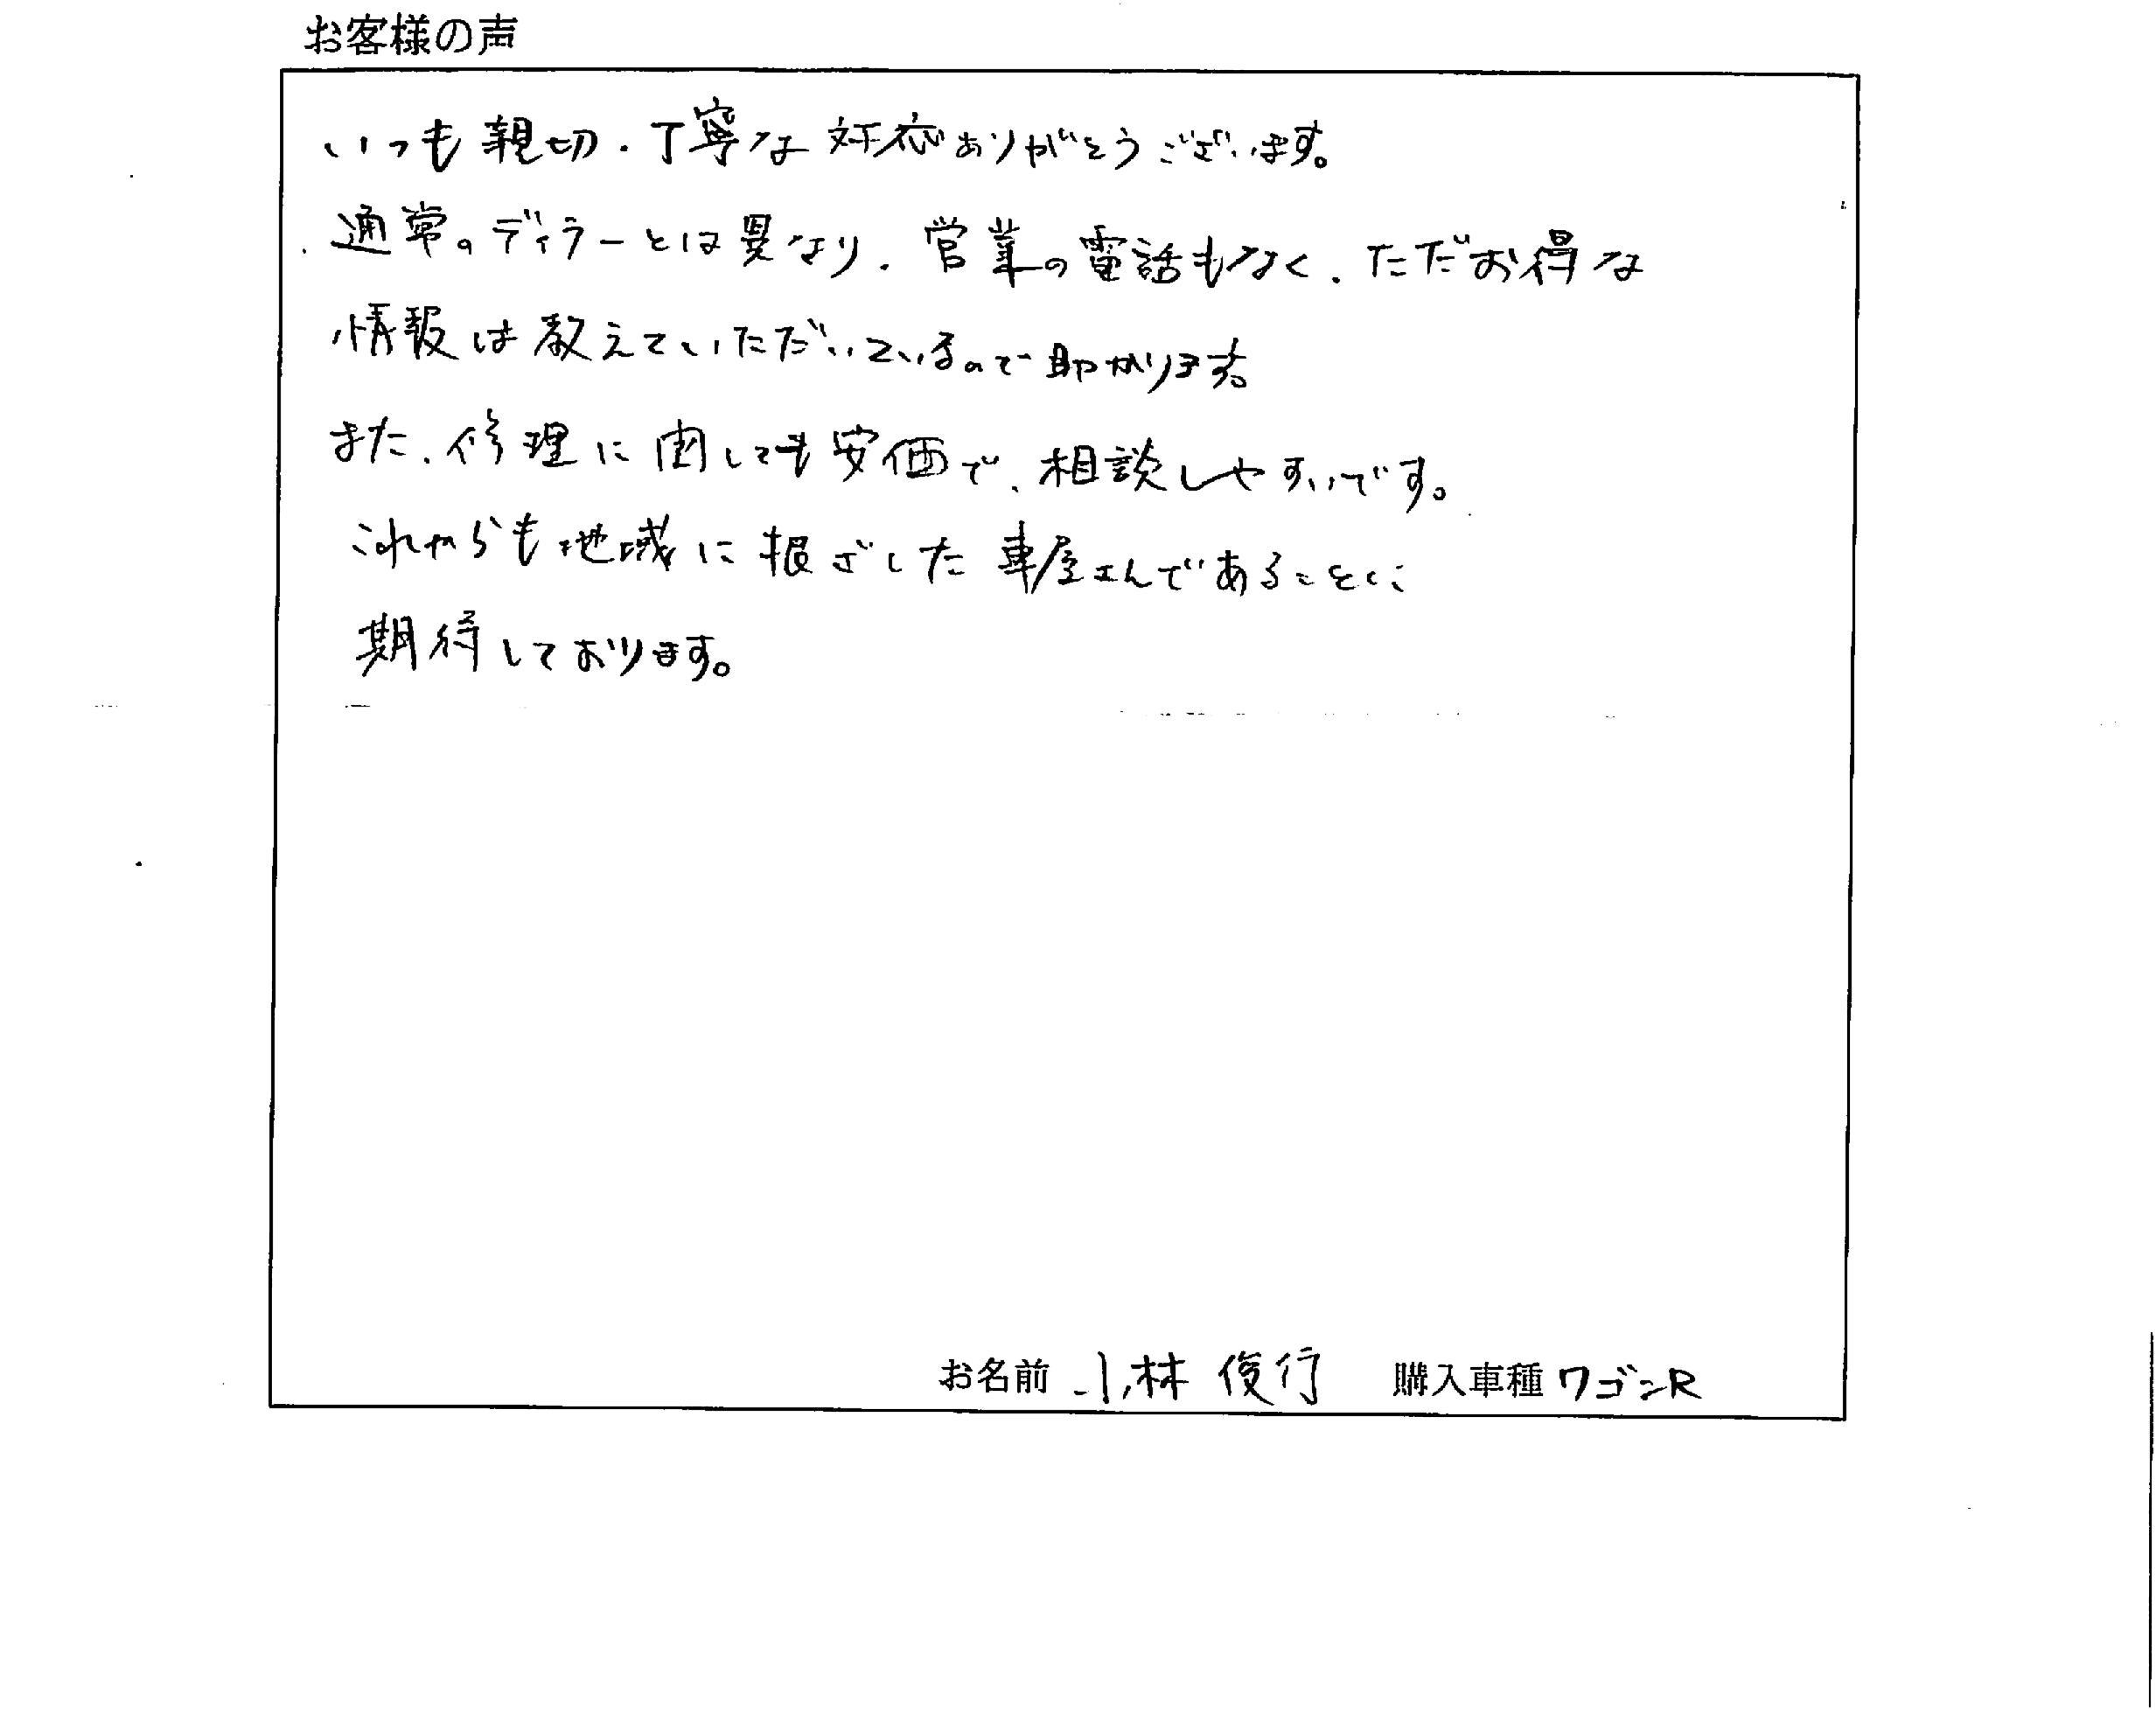 お客様の声
いつも親切・丁寧な対応ありがとうございます。
通常のディラーとは異なり、営業の電話もなく、ただお得な
情報は教えていただいているので助かります。
また、修理に関しても安価で、相談しやすいです。
これからも地域に根ざした車屋さんであることに
期待しております。
お名前 小林 俊行 購入車種 ワゴンR